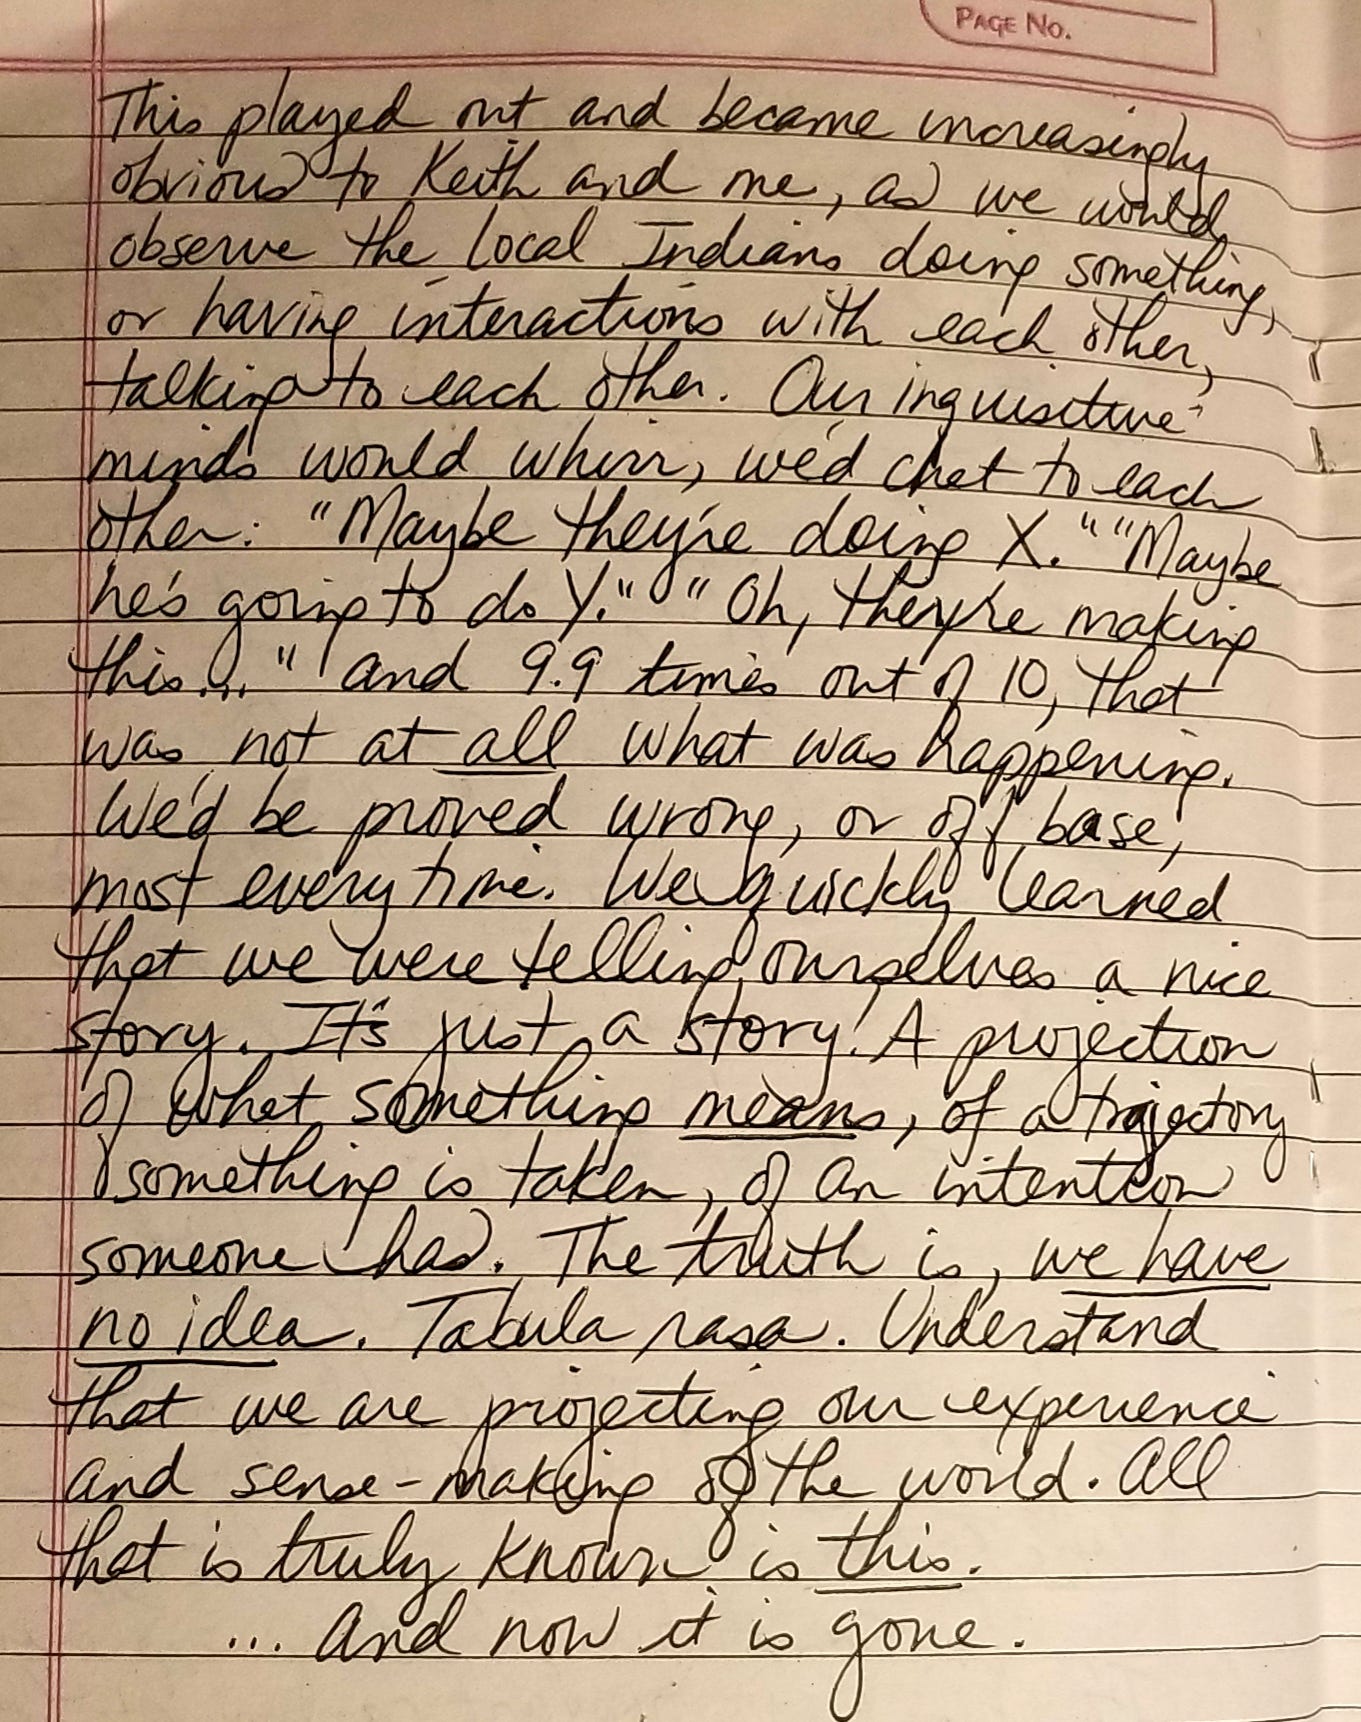 PAGE NO.
This played out and became increasingly
obvious to Keith and me, as we would
observe the local Indians doing something,
or having interactions with each other,
talking to each other. Our inquisitive
minds would whirr, we'd chat to each
other: "Maybe they're doing X." "Maybe
he's going to do Y." "Oh, they're making
this..." and 9.9 times out of 10, that
was not at all what was happening.
We'd be proved wrong, or off base,
most every time. We quickly learned
that we were telling ourselves a nice
story. It's just a story! A projection
of what something means, of a trajectory
something is taken, of an intention
someone has. The truth is, we have
no idea. Tabula rasa. Understand
that we are projecting our experience
and sense-making of the world. All
that is truly known is this.
... And now it is gone.